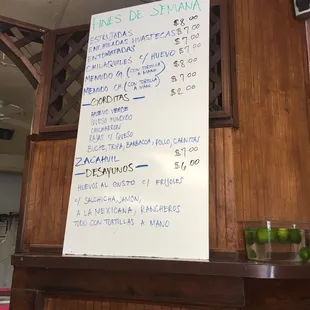 FINES DE SEMANA
ESTRUJADAS $8.00
ENCHILADAS HUASTECAS $7.00
ENTOMATADAS $7.00
CHILAQUILES C/ HUEVO $7.00
MENUDO G (CON TORTILLA A MANO) $8.00
MENUDO CH (CON TORTILLA A MANO) $7.00
GORDITAS $2.00
HUEVO VERDE
QUESO FUNDIDO
CHICHARRON
RAJAS C/ QUESO
BUCHE, TRIPA, BARBACOA, POLLO, CARNITAS
ZACAHUIL $7.00
DESAYUNOS $6.00
HUEVOS AL GUSTO C/ FRIJOLES
C/ SALCHICHA, JAMON,
A LA MEXICANA, RANCHEROS
TODO CON TORTILLAS A MANO